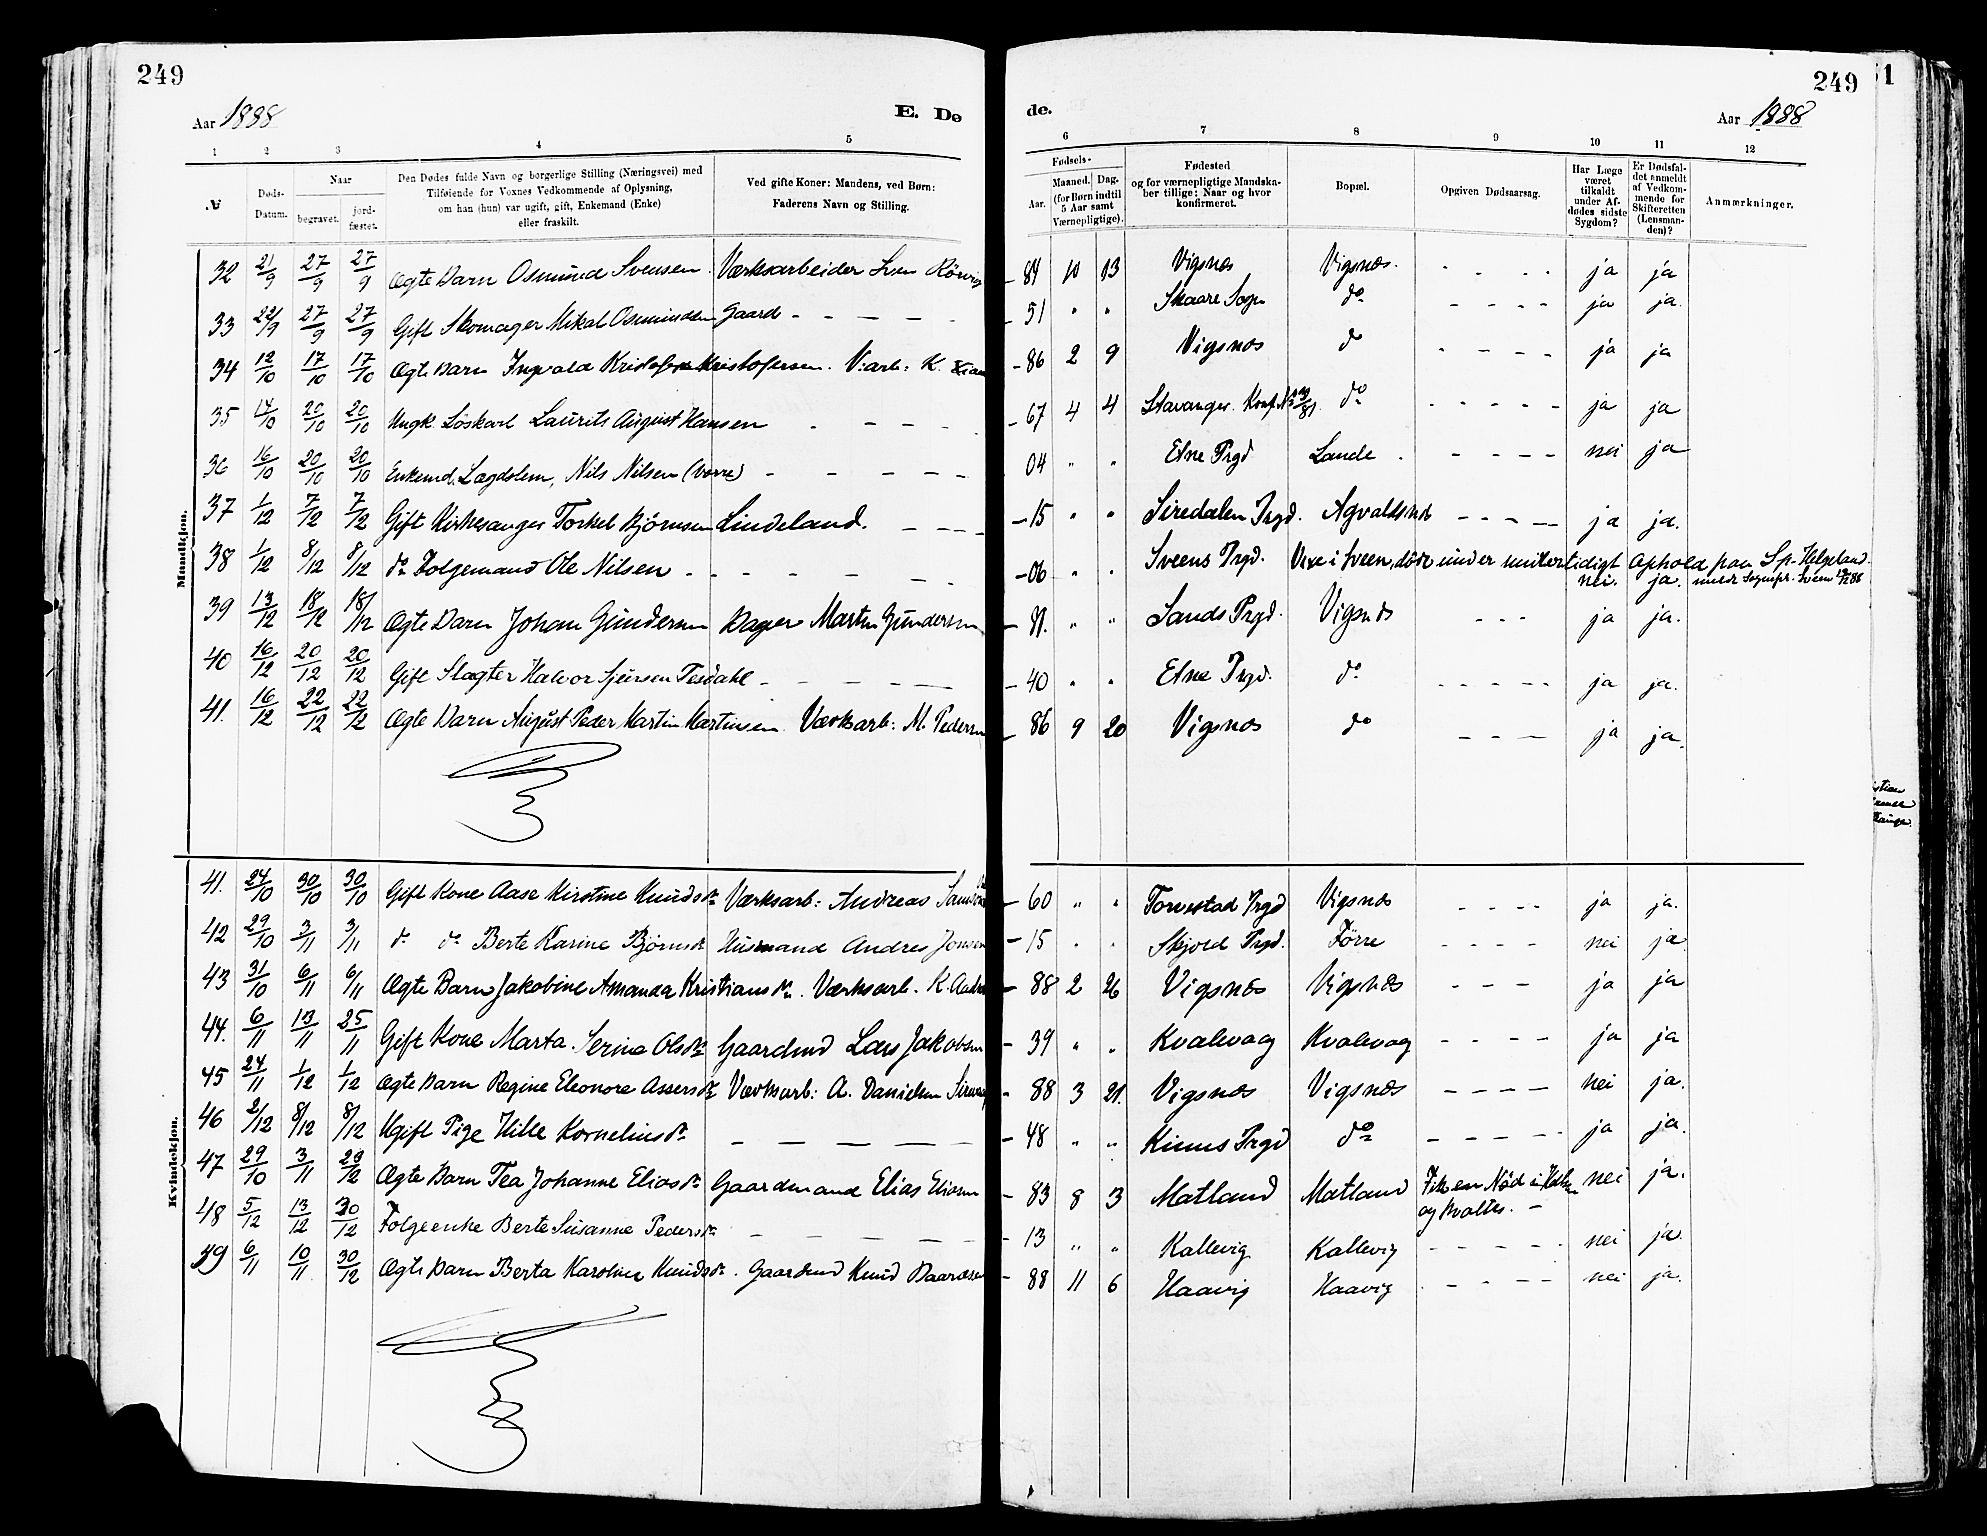 249
249
51
Aar 1888
E. Dø
de.
Aar 1888
1 2 3 4 5 6 7 8 9 10 11 12
№
Døds-Datum.
Naar
begravet.
jord-fæstet.
Den Dødes fulde Navn og borgerlige Stilling (Næringsvei) med
Tilføiende for Voxnes Vedkommende af Oplysning,
om han (hun) var ugift, gift, Enkemand (Enke)
eller fraskilt.
Ved gifte Koner: Mandens, ved Børn:
Faderens Navn og Stilling.
Fødsels-
Aar.
Maaned. Dag.
(for Børn indtil
5 Aar samt
Værnepligtige).
Fødested
og for værnepligtige Mandska-
ber tillige: Naar og hvor
konfirmeret.
Bopæl.
Opgiven Dødsaarsag.
Har Læge
været
tilkaldt
under Af-
dødes sidste
Sygdom?
Er Dødsfal-
det anmeldt
af Vedkom-
mende for
Skifteretten
(Lensman-
den)?
Anmærkninger.
Mandkjøn.
32 21/9 27/9 27/9 Ægte Barn Osmund Svensen Værksarbeider Sven - 84 10 13 Vigsnes Vigsnes - - - - ja ja
33 22/9 27/9 27/9 Gift Skomager Mikal Osmundsen Gaard - - - - - - 51 " " Skaare Sogn do - - - - ja ja.
34 12/10 17/10 17/10 Ægte Barn Ingvald Kristofersen Kristofersen. V.arb: K. - 86 2 9 Vigsnes do - - - - ja ja
35 14/10 20/10 20/10 Ungk. Løskarl Laurits August Hansen - - - - - 67 4 4 Stavanger. Konf. do - - - - - ja ja
36 16/10 20/10 20/10 Enkemd. Lægdslem, Nils Nilsen - - - - - - 04 " " Etne Prgd Lande - - - - nei ja
37 1/12 7/12 7/12 Gift Kirkesanger Torkel Bjørnsen Lindeland. - - - - 15 " " Siredalen Prgd. Agvaldsnes - - - - ja ja.
38 1/12 8/12 8/12 do Folgemand Ole Nilsen - - - - - - - 06 " " Sveens Prgd. i Sveen, døde under midlertidigt Ophold paa Sp. Helgeland
nei. ja.
39 13/12 18/12 18/12 Ægte Barn Johan Gundersen Bager Martin Gundersen - " " Sands Prgd. Vigsnes - - - ja ja.
40 16/12 20/12 20/12 Gift Slagter Halvor Sjursen Tesdahl - - - - - - 40 " " Etne Prgd. do - - - - - ja ja.
41. 16/12 22/12 22/12 Ægte Barn August Peder Martin Martinsen Værksarb: M. Pedersen - 86 9 20 Vigsnes do - - - ja ja.
Kvindekjøn.
41. 24/10 30/10 30/10 Gift Kone Aase Kirstine Knudsdr. Værksarb: Andreas - 60 " " Torvestad Prgd Vigsnes - - - - ja ja.
42 29/10 3/11 3/11 do do Berte Karine Bjørnsdr Husmand Andres Jonsen - 15 " " Skjold Prgd. Førre - - - - nei ja
43 31/10 6/11 6/11 Ægte Barn Jakobine Amanda Kristiansdr. Værksarb. K. - 88 2 26 Vigsnes Vigsnes - - - ja ja
44. 6/11 13/11 25/11 Gift Kone Marta Serine Olsdr. Gaardmd Lars Jakobsen - 39 " " Kvalevaag Kvalevaag - - - - ja ja
45 24/11 1/12 1/12 Ægte Barn Regine Eleonore Assersdr. Værksarb: A. Danielsen - 88 3 21. Vigsnes Vigsnes - - - - nei ja.
46 2/12 8/12 8/12 Ugift Pige Hille Korneliusdr - - - - - - 48 " " Kinns Prgd do - - - - - ja ja.
47 29/10 3/11 29/12 Ægte Barn Tea Johanne Eliasdr Gaardmand Elias Eliasen - 83 8 3 Matland Matland Fik en Nød i Halsen nei ja.
og kvaltes. -
48 5/12 13/12 30/12 Folgeenke Berte Susanne Pedersdr - - - - - - 13 " " Kallevig Kallevig - - - - - nei ja
49 6/11 10/11 30/12 Ægte Barn Berta Karoline Knudsdr. Gaardmd Knud Baardsen - 88 11 6 Haavig Haavig - - - - nei ja.